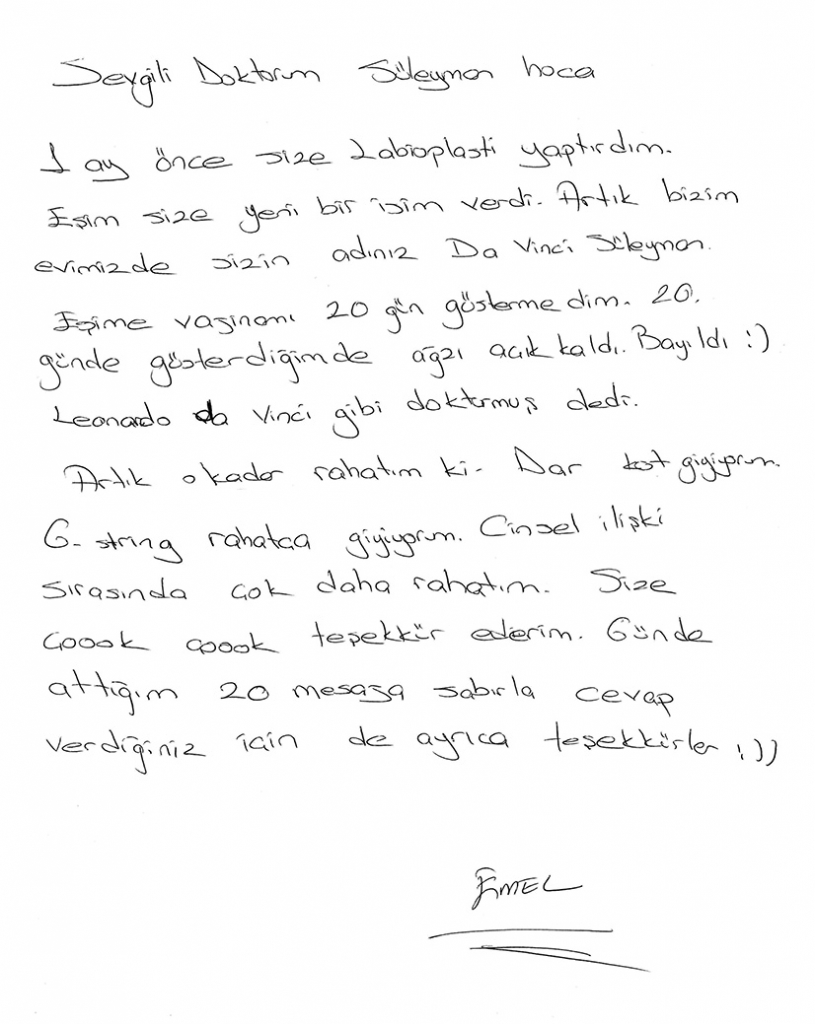 Sevgili Doktorum Süleyman hoca
1 ay önce size Labioplasti yaptırdım.
Eşim size yeni bir isim verdi. Artık bizim
evimizde sizin adınız Da Vinci Süleyman.
Eşime vajinamı 20 gün göstermedim. 20.
günde gösterdiğimde ağzı açık kaldı. Bayıldı :)
Leonardo da Vinci gibi doktormuş dedi.
Artık o kadar rahatım ki. Dar kot giyiyorum.
G-string rahatca giyiyorum. Cinsel ilişki
sırasında çok daha rahatım. Size
çoook çoook teşekkür ederim. Günde
attığım 20 mesaja sabırla cevap
verdiğiniz için de ayrıca teşekkürler :))
EMEL